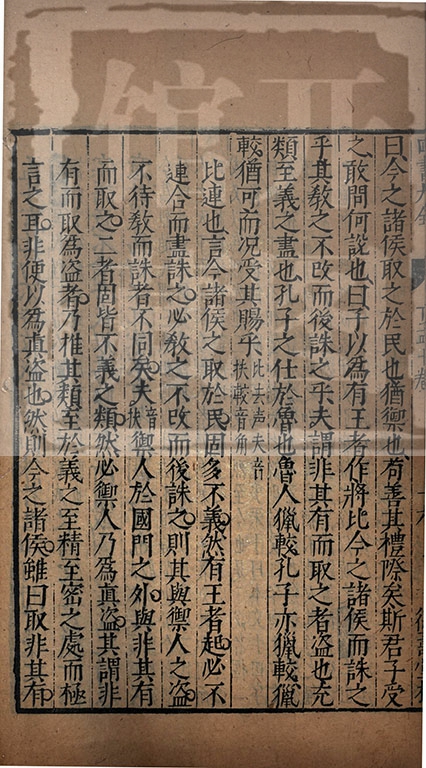 曰今之諸侯取之於民也猶禦也苟善其禮際矣斯君子受
之敢問何說也曰子以為有王者作將比今之諸侯而誅之
乎其教之不改而後誅之乎夫謂非其有而取之者盜也充
類至義之盡也孔子之仕於魯也魯人獵較孔子亦獵較獵
較猶可而況受其賜乎 比去声夫音扶較音角
比連也言今諸侯之取於民固多不義然有王者起必不
連合而盡誅之必教之不改而後誅之則其與禦人之盜
不待教而誅者不同矣夫音扶禦人於國門之外與非其有
而取之二者固皆不義之類然必禦人乃為真盜其謂非
有而取為盜者乃推其類至於義之至精至密之處而極
言之耳非便以為真盜也然則今之諸侯雖曰取非其有